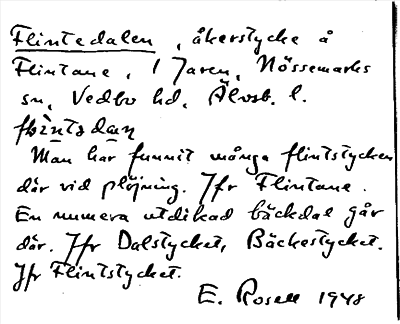 Flintedalen, åkerstycke å
Flintane, i Jaren, Nössemarks
sn, Vedbo hd, Älvsb. l.
Man har funnit många flintstycken
där vid plöjning. Jfr Flintane.
En numera utdikad bäckdal går
där. Jfr Dalstycket, Bäckestycket.
Jfr Flintstycket.
E. Rosell 1948